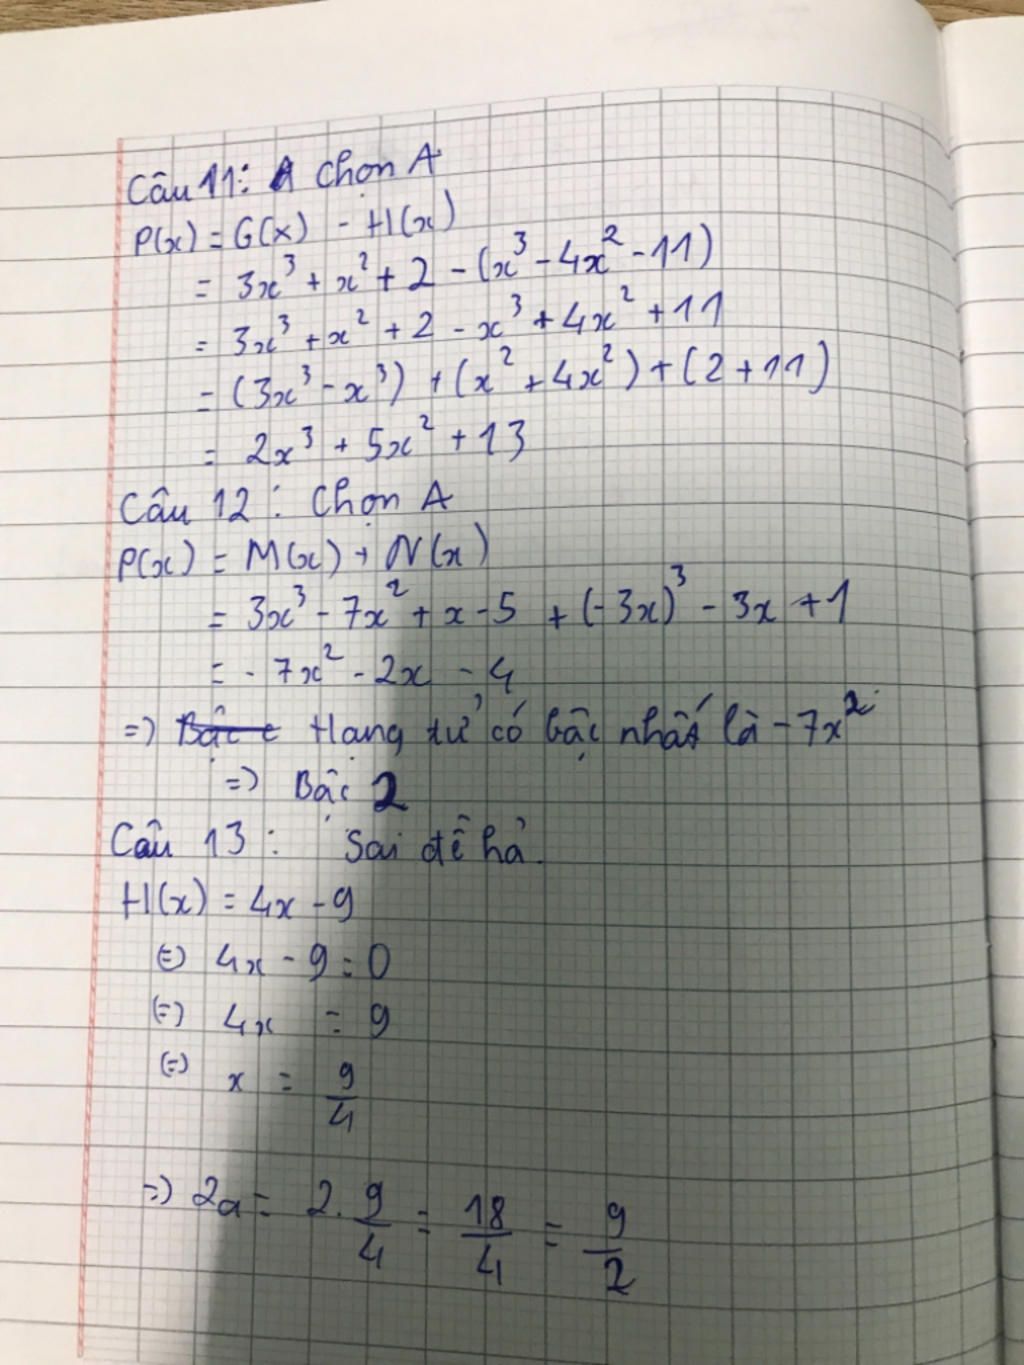 Câu 11: A Chọn A
P(x) = G(x) - H(x)
= 3x³ + x² + 2 - (x³ - 4x² - 11)
= 3x³ + x² + 2 - x³ + 4x² + 11
= (3x³ - x³) + (x² + 4x²) + (2 + 11)
= 2x³ + 5x² + 13
Câu 12: Chọn A
P(x) = M(x) + N(x)
= 3x³ - 7x² + x - 5 + (-3x)³ - 3x + 1
= - 7x² - 2x - 4
=> Bậc Hạng tử có bậc nhất là -7x²
=> Bậc 2
Câu 13: Sai đề hả.
H(x) = 4x - 9
(=) 4x - 9 = 0
(=) 4x = 9
(=) x = 9/4
=> 2a = 2. 9/4 = 18/4 = 9/2